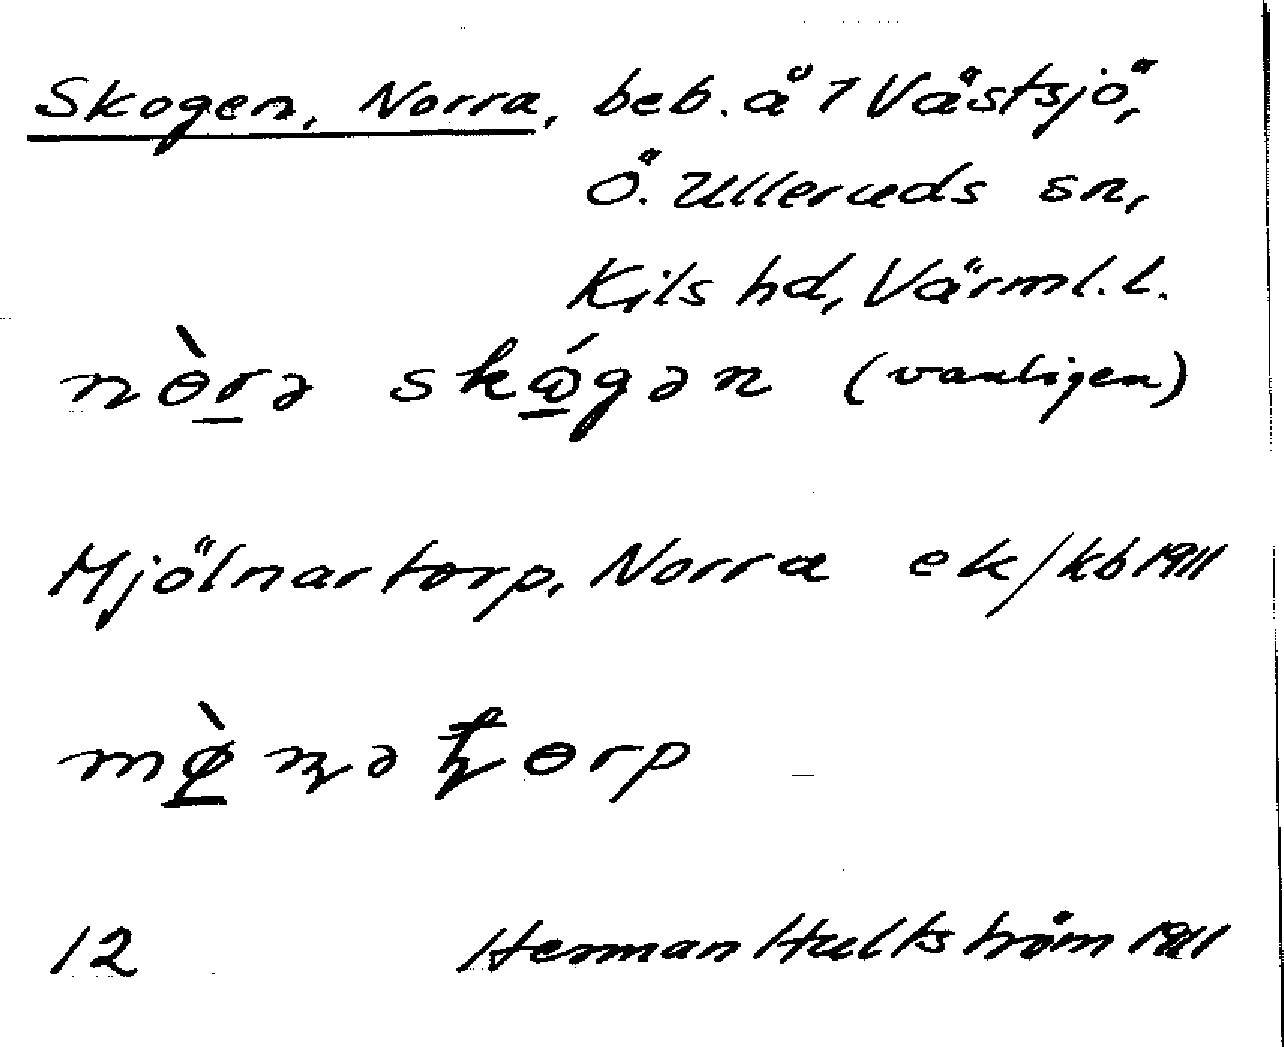 Skogen, Norra, beb. å 1 Västsjö,
Ö. Ulleruds sn,
Kils hd, Värml. l.
nò̵rə skǿgən (vanligen)
Mjölnartorp, Norra ek/kb 1911
12 Herman Hultström 1911